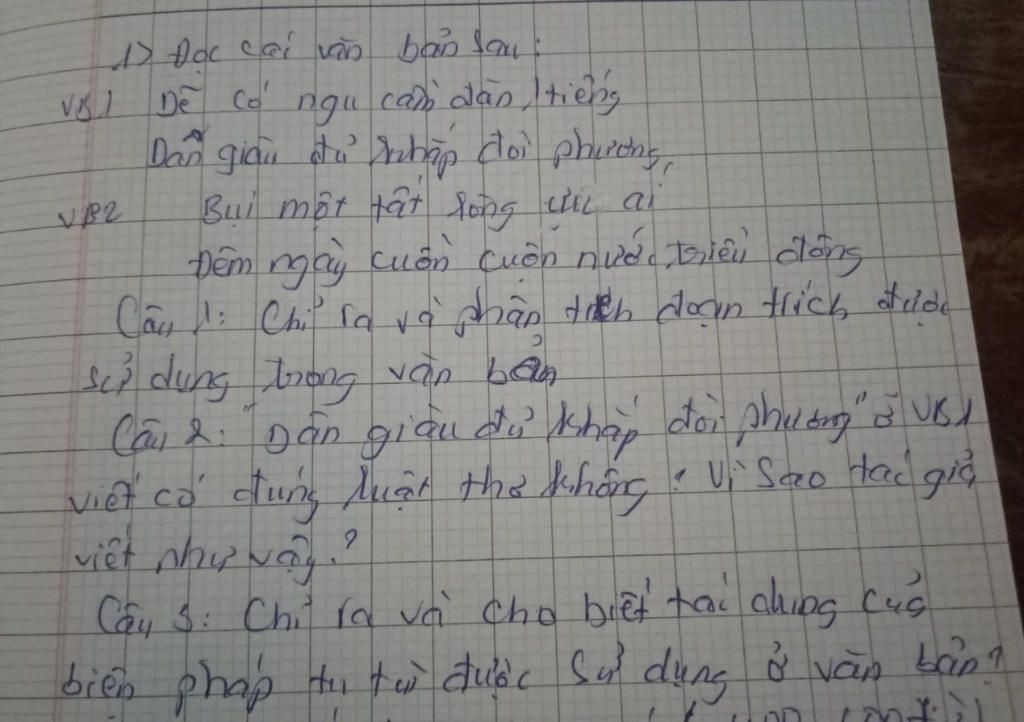 1> Đọc các văn bản sau:
VB1 Dẽ có ngu cầm đàn 1 tiếng
Dân giàu đủ khắp đòi phương,
VB2 Bui một tất lòng ưu ái
Đêm ngày cuồn cuộn nước triều đông
Câu 1: Chỉ ra và phân tích đoạn trích được
sử dụng trong văn bản
Câu 2: "Dân giàu đủ khắp đòi phương" ở VB1
viết có đúng luật thơ không? Vì sao tác giả
viết như vậy?
Câu 3: Chỉ ra và cho biết tác dụng của
biện pháp tu từ được sử dụng ở văn bản?